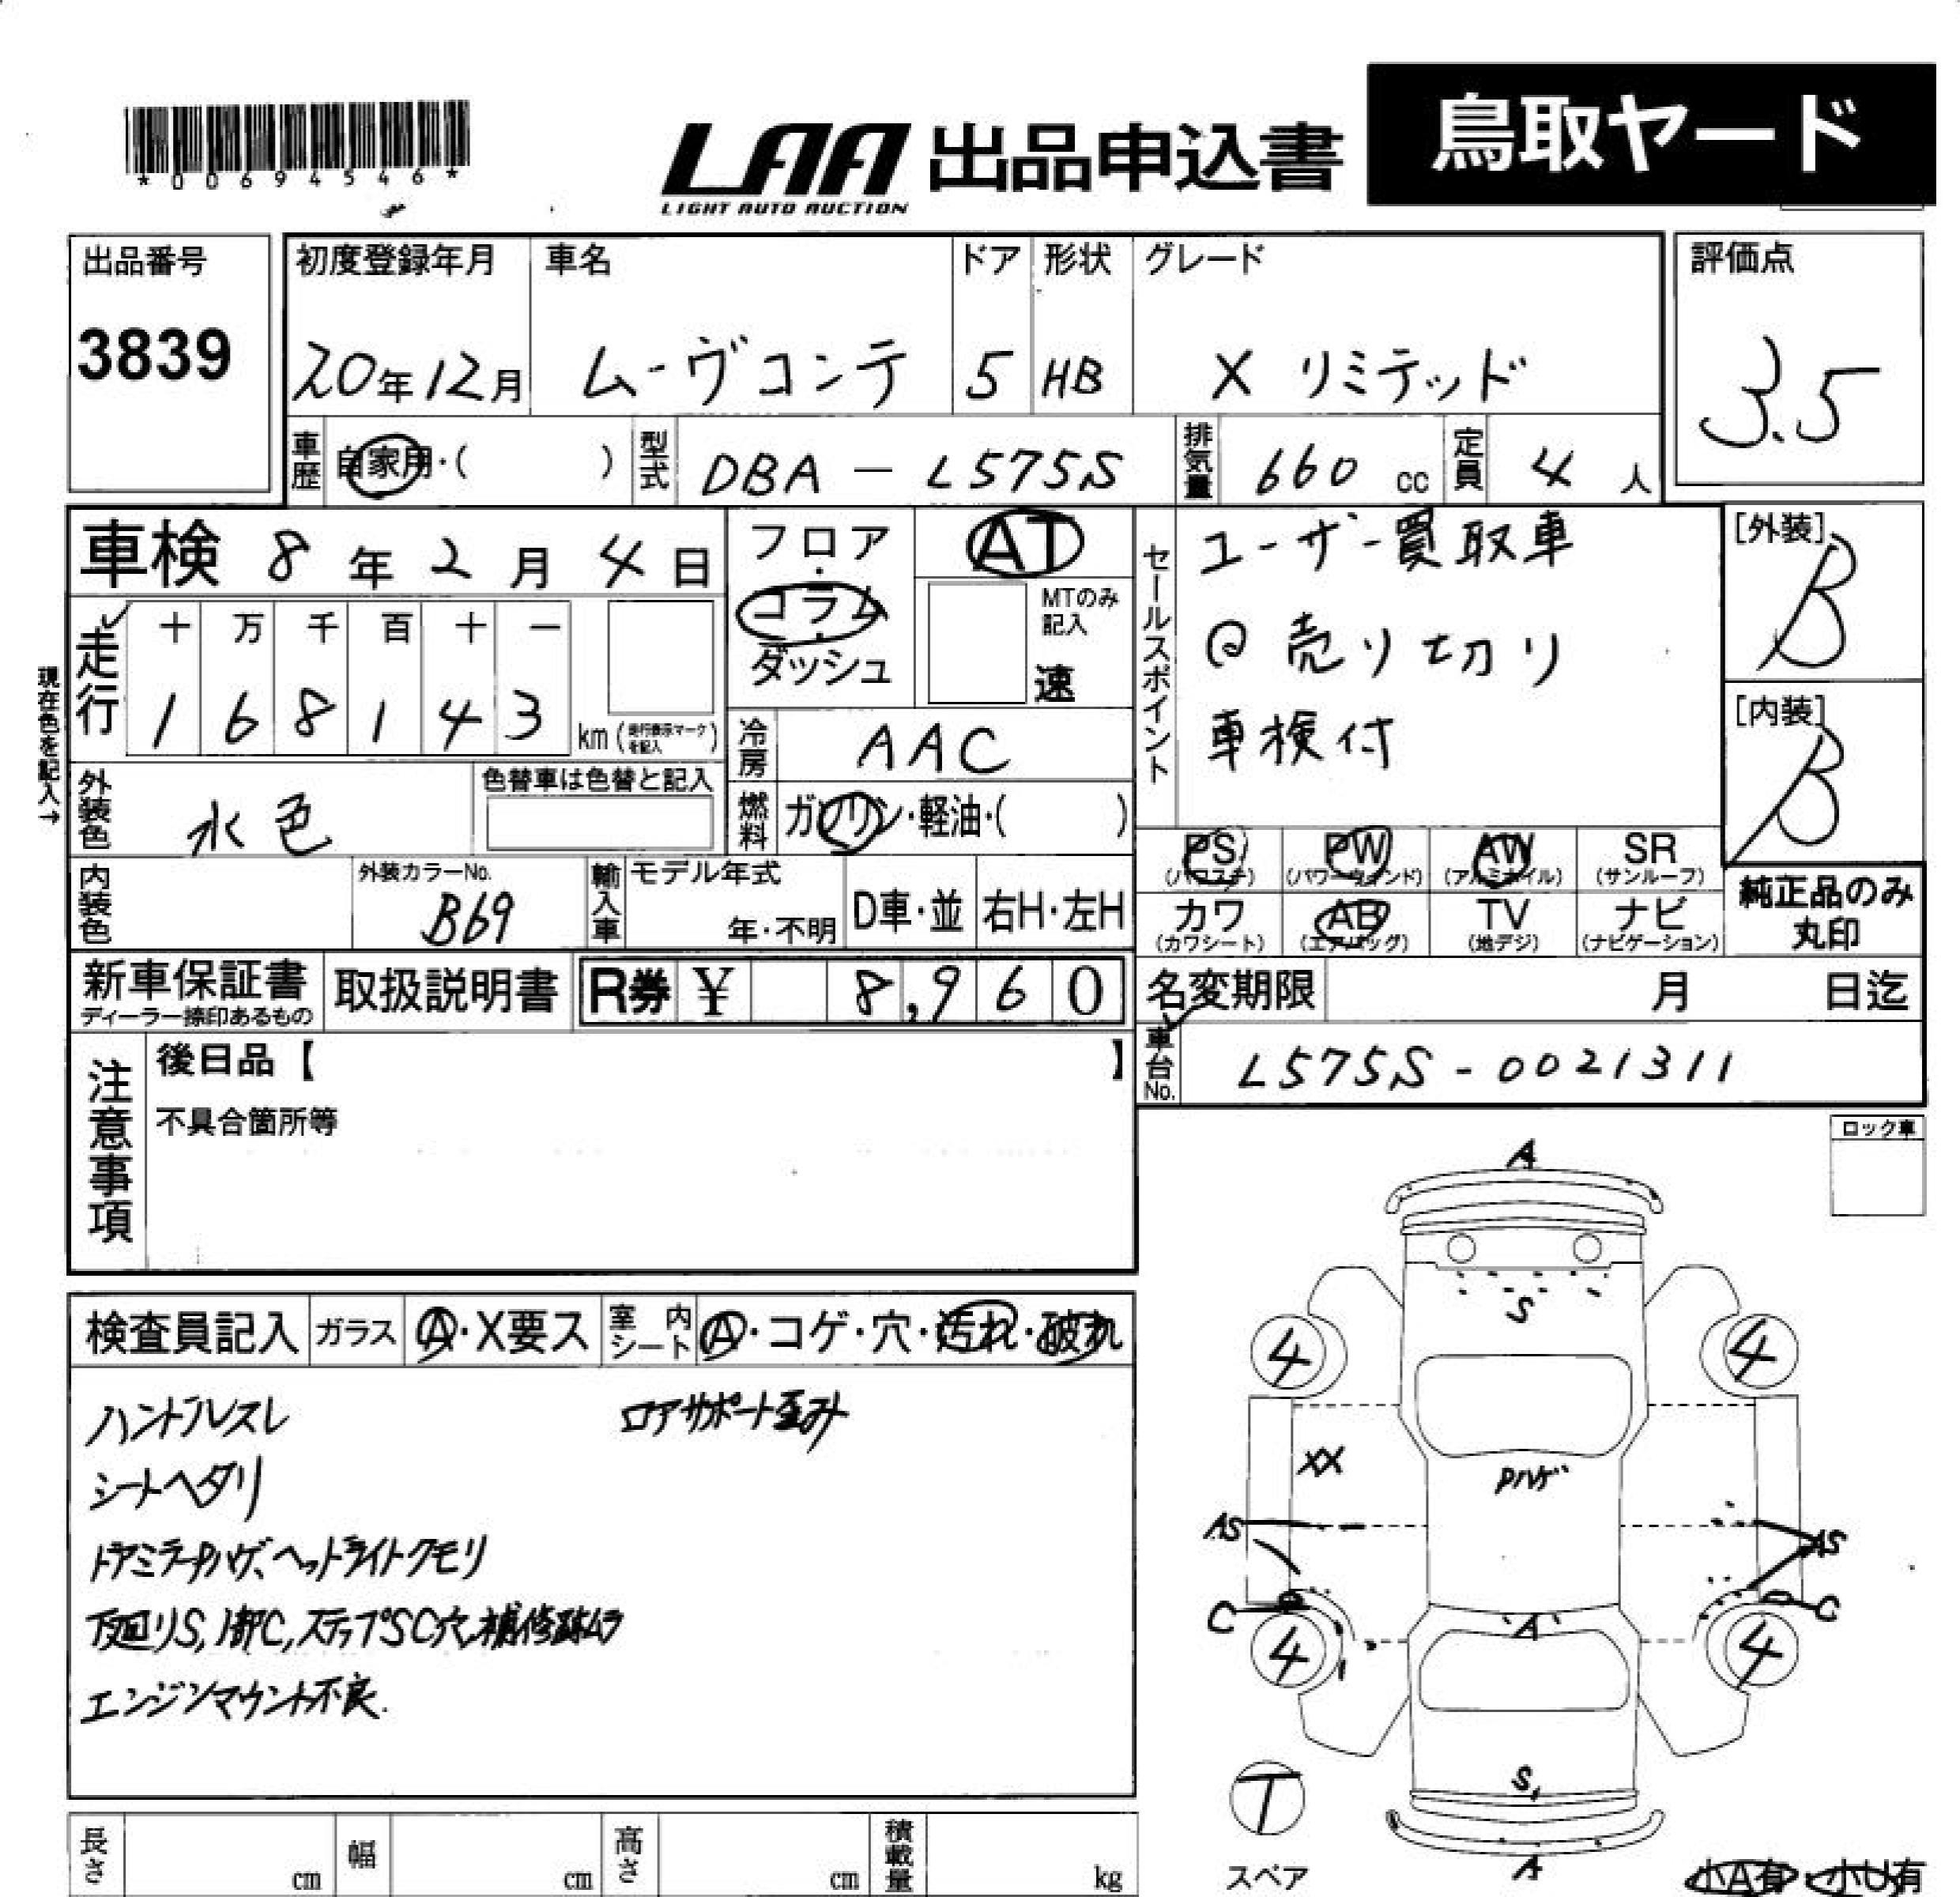 *00694546*
LAA 出品申込書 鳥取ヤード
LIGHT AUTO AUCTION
出品番号 3839
初度登録年月 20年12月
車名 ムーヴコンテ
ドア 5
形状 HB
グレード X リミテッド
評価点 3.5
車歴 自家用・( )
型式 DBA-L575S
排気量 660 cc
定員 4 人
車検 8年2月4日
フロア・コラム・ダッシュ
AT
MTのみ記入
速
セールスポイント
ユーザー買取車
◎売り切り
車検付
[外装] B
[内装] B
現在色を記入→
走行 十万千百十一
168143 km
冷房 AAC
外装色 水色
色替車は色替と記入
燃料 ガソリン・軽油・( )
PS (パワステ) PW (パワーウィンド) AW (アルミホイル) SR (サンルーフ)
カワ (カワシート) AB (エアバッグ) TV (地デジ) ナビ (ナビゲーション)
純正品のみ丸印
内装色
外装カラーNo. B69
輸入車 モデル年式 年・不明 D車・並 右H・左H
新車保証書
ディーラー捺印あるもの
取扱説明書
R券 ¥ 8,960
名変期限 月 日迄
車台No. L575S-0021311
注意事項
後日品【 】
不具合箇所等
ロック車
検査員記入 ガラス A・X要ス 室内シート A・コゲ・穴・汚れ・破れ
ハンドルスレ ロアサポート歪み
シートヘタリ
ドアミラーPハゲ、ヘッドライトクモリ
下廻りS, 1部C, ステップSC穴、補修跡ムラ
エンジンマウント不良.
A
S
4 4
XX
Pハゲ
AS AS
C C
A
4 4
S,
T
スペア
A
小A有・小U有
長さ cm 幅 cm 高さ cm 積載量 kg